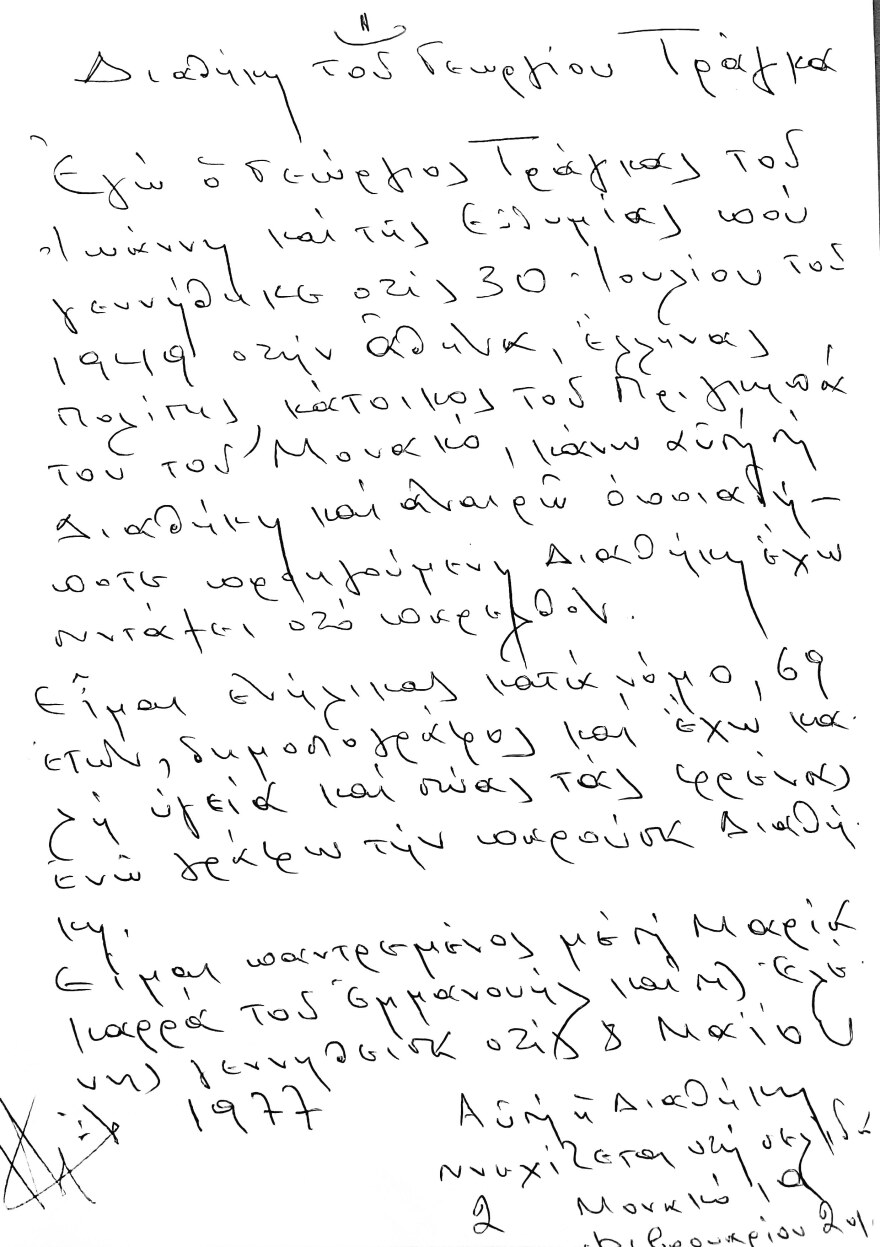 Διαθήκη τοῦ Γεωργίου Τράγκα
Ἐγώ ὁ Γεώργιος Τράγκας τοῦ
Ἰωάννη καί τῆς Εὐθυμίας πού
γεννήθηκε στίς 30 Ἰουλίου τοῦ
1949 στήν Ἀθήνα, Ἕλληνας
πολίτης, κάτοικος τοῦ Πριγκηπά
του τοῦ Μονακό, κάνω αὐτή ἡ
Διαθήκη καί ἀναιρῶ ὁποιαδή-
ποτε προηγούμενη Διαθήκη ἔχω
συντάξει στό παρελθόν.
Εἶμαι ἐνήλικας κατά νόμο, 69
ἐτῶν, δημοσιογράφος καί ἔχω κα
λή ὑγεία καί σώας τάς φρένας
ἐνῶ γράφω τήν παρούσα Διαθή
κη.
Εἶμαι παντρεμένος μέ τή Μαρία
Καρρά τοῦ Ἐμμανουήλ καί τῆς Ἑλέ
νης γεννηθείσα στίς 8 Μαΐου
1977
Αὐτή ἡ Διαθήκη
συνεχίζεται στή σελίδα
2 Μονακό,
Φεβρουαρίου